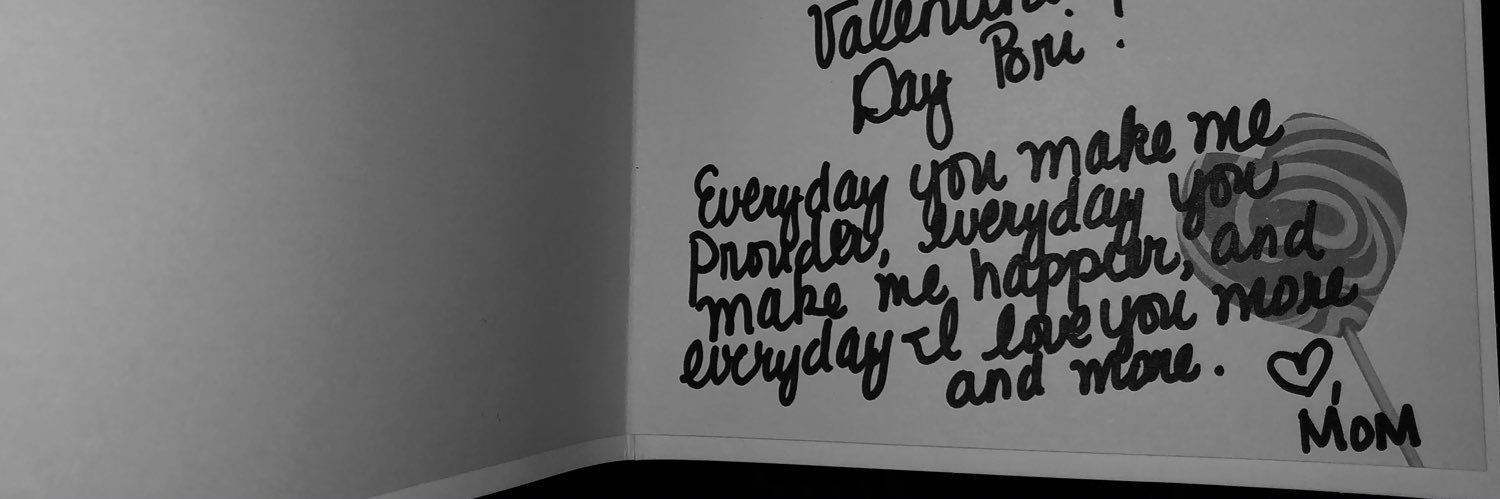 Day Pori!
Everyday you make me
Prouder, everyday you
make me happier, and
everyday I love you more
and more. ♡,
MoM